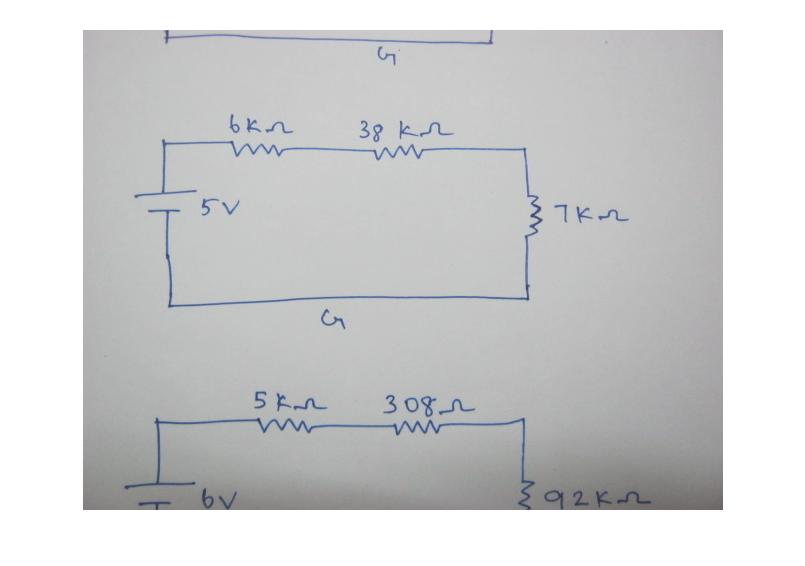 G
6KΩ 38 KΩ
5V 7KΩ
G
5KΩ 308Ω
6V 92KΩ